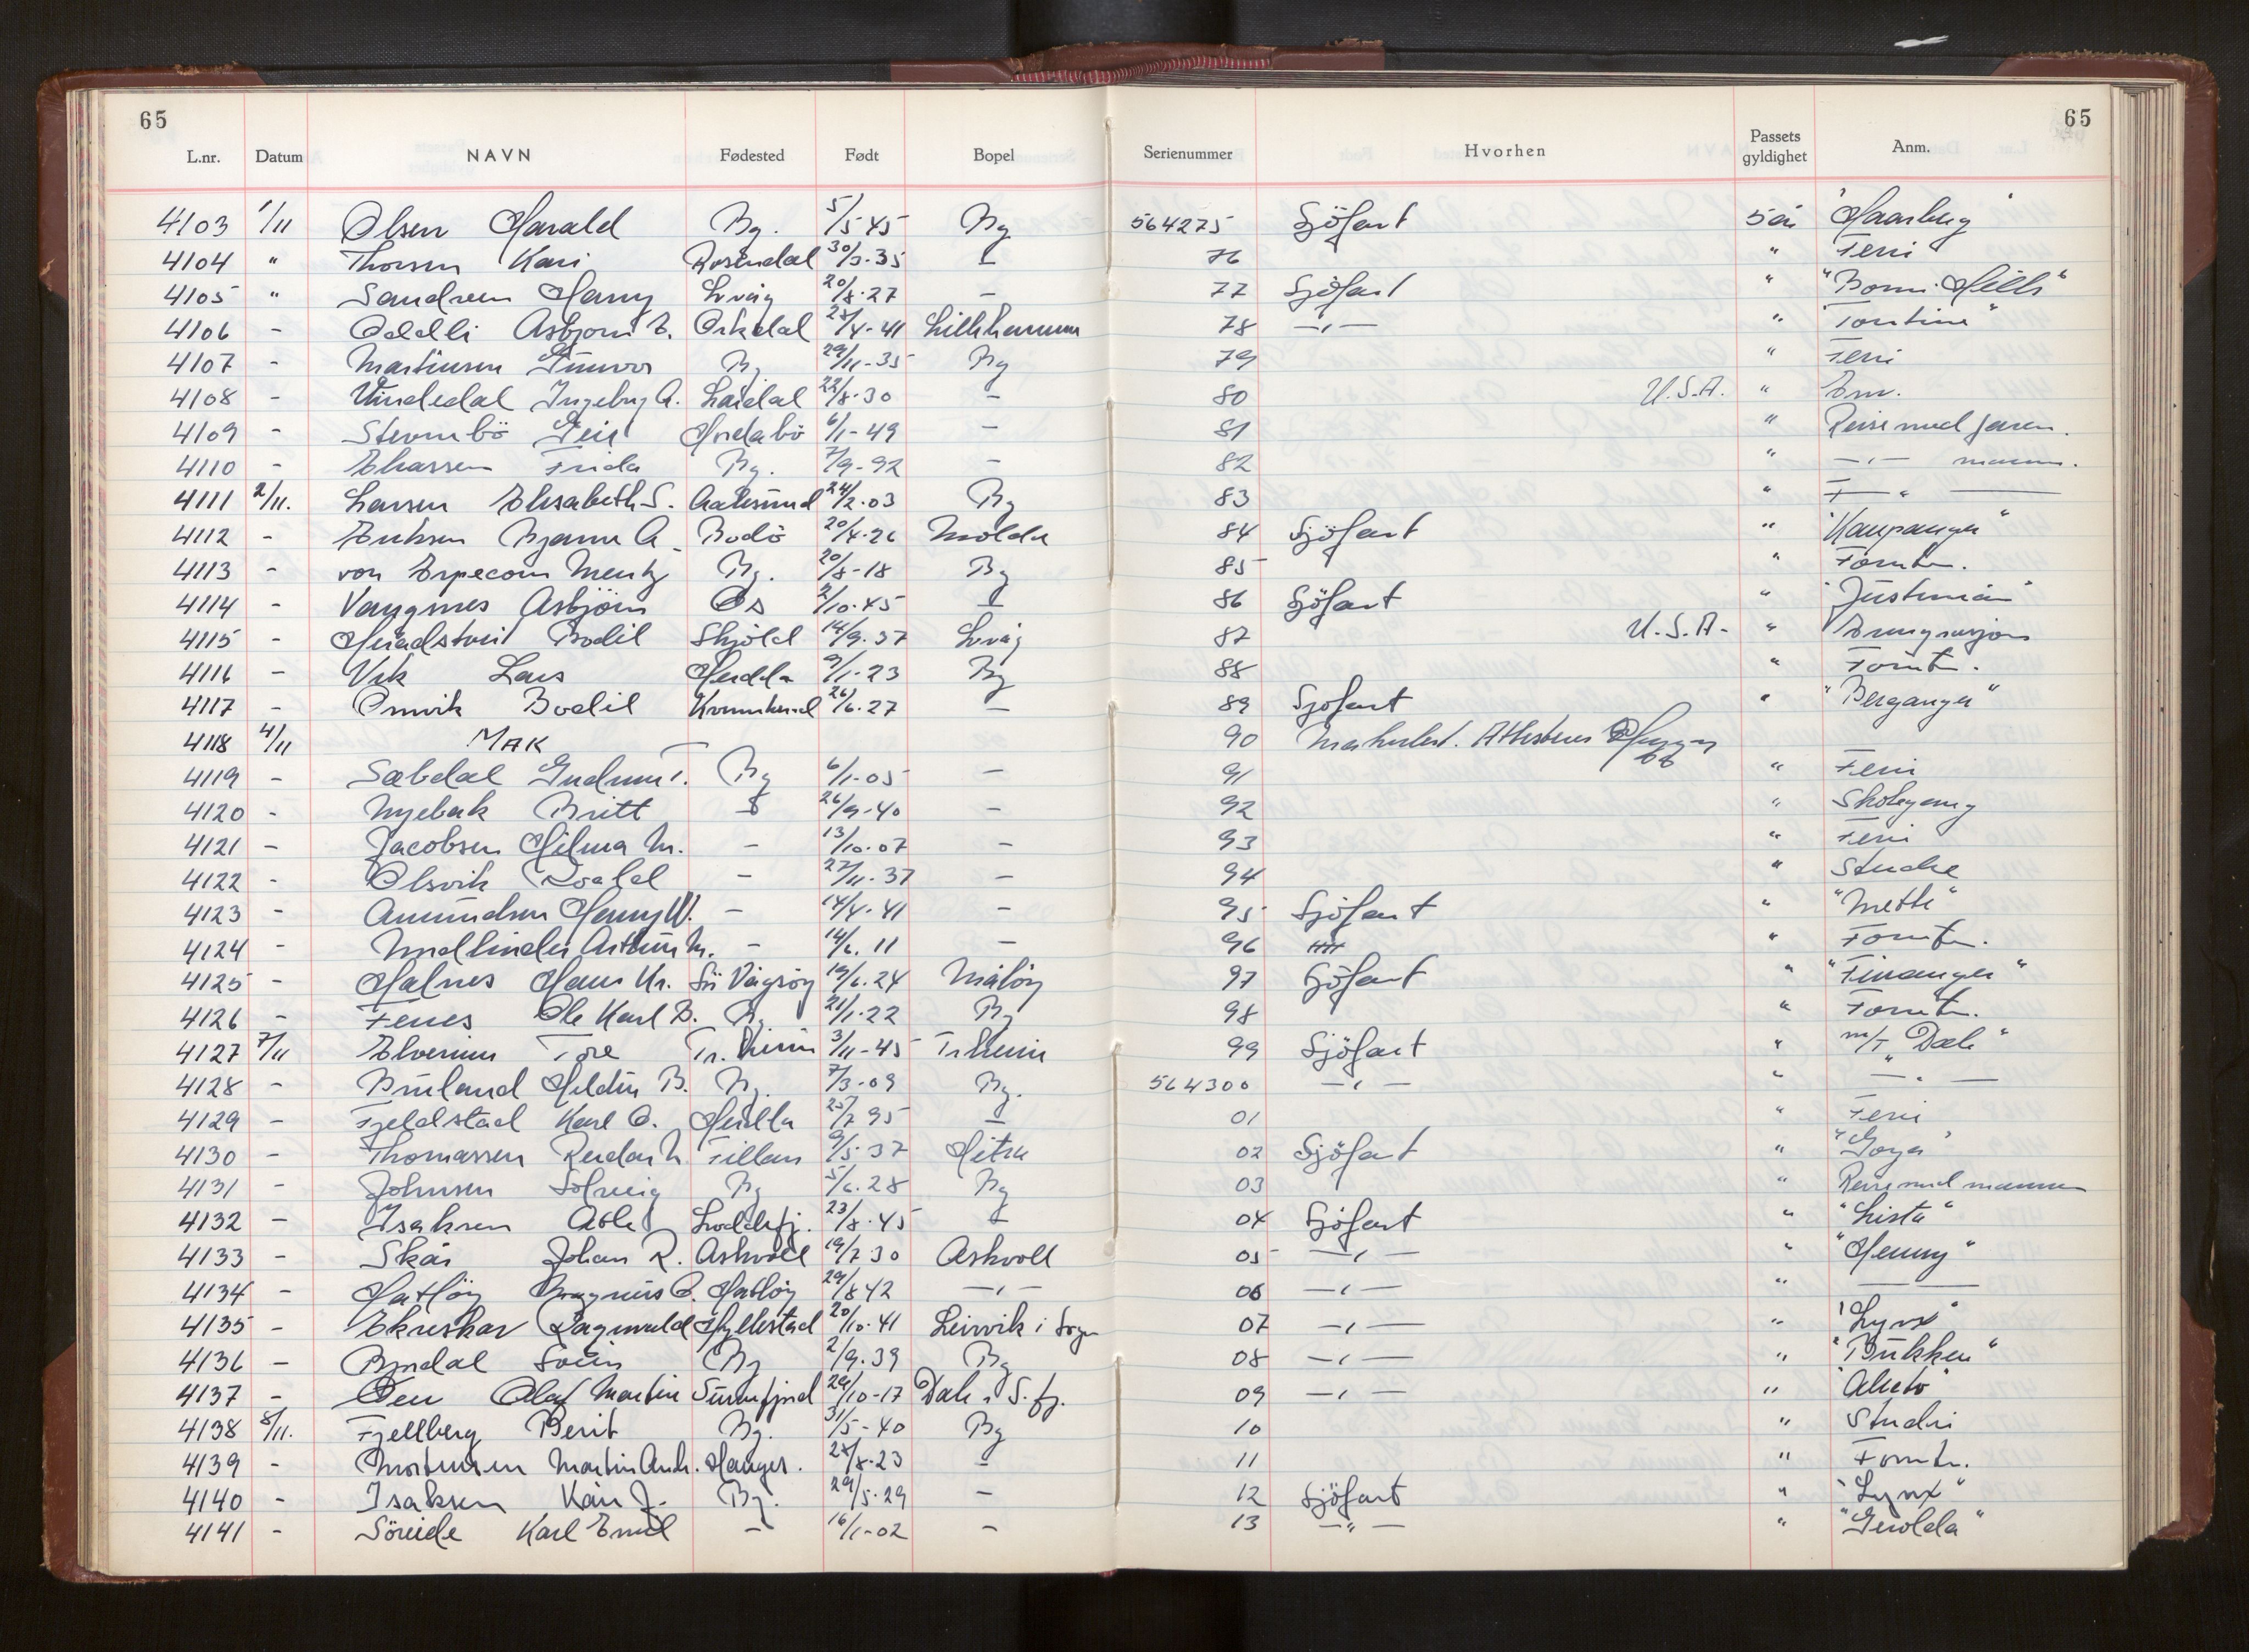 65 65
L.nr. Datum NAVN Fødested Født Bopel Serienummer Hvorhen Passets gyldighet Anm.
4103 1/11 Olsen Harald Bg. 5/5 45 Bg 564275 Sjöfart 5 år "Haarberg"
4104 " Thorsen Kari Rosendal 30/3.35 – 76 " Feri
4105 " Sandven Harry Kvåg 20/8.27 – 77 Sjöfart " "Bomi-Hills"
4106 – Asbjørn E. Orkdal 28/4-41 Lillehammer 78 –"– " "Tontine"
4107 – Martinsen Gunvor Bg 29/11-35 Bg 79 " Feri
4108 – Vindedal Ingebrg A. Lærdal 22/8.30 – 80 U.S.A. " Em.
4109 – Stormbö Geir Hordabö 6/1-49 – 81 " Reise med faren.
4110 – Eliassen Frida Bg. 7/9-92 – 82 " –"– mannen.
4111 2/11. Larsen Elisabeth S. Aalesund 24/2.03 Bg 83 " –"–
4112 – Eriksen Bjarne A. Bodö 20/4.26 Molde 84 Sjöfart " "Kaupanger"
4113 – von Erpecom Mentz Bg. 20/8-18 Bg 85 " Fornth.
4114 – Vangsnes Asbjörn Os 2/10.45 – 86 Sjöfart " "Justinian"
4115 – Bodil Skjöld 14/9.37 Kvåg 87 U.S.A. " Emigrasjon
4116 – Vik Lars Herdla 9/1-23 Bg 88 "
4117 – Omvik Bodil Kvinnherad 26/6.27 – 89 Sjöfart " "Berganger"
4118 4/11 MAK 90 Makulert.
4119 – Sæbdal Gudrun T. Bg 6/1-05 – 91 " Feri
4120 – Nyebak Britt – 26/9-40 – 92 " Skolegang
4121 – Jacobsen Hilma M. – 13/10.07 – 93 " Feri
4122 – Olsvik Roald – 27/11-37 – 94 " Studie
4123 – Amundsen Henny W. – 14/4-41 – 95 Sjöfart " "Mette"
4124 – Arthur M. – 14/6.11 – 96 "
4125 – Halnes Hans Kr. Sö Vågsöy 19/6.24 Måløy 97 Sjöfart " "Finnanger"
4126 – Fenes Ole Karl B. Bg. 21/1-22 Bg 98 "
4127 7/11 Elverum Tore Tr.heim 3/11-45 Tr.heim 99 Sjöfart " m/T "Dale"
4128 – Bruland B. Bg. 7/3-09 Bg. 564300 –"– " –"–
4129 – Fjeldstad Karl O. Herdla 25/7 95 – 01 " Feri
4130 – Thomassen Reidar N. Fillan 9/5-37 Hitra 02 Sjöfart " "Goya"
4131 – Johnsen Solveig Bg 5/6.28 Bg 03 " Reise med mannen
4132 – Isaksen Atle Loddefj. 23/8.45 – 04 Sjöfart " "Lista"
4133 – Skår Johan R. Askvoll 19/7 30 Askvoll 05 –"– " "Henny"
4134 – Hatlöy Magnus O. Hatlöy 29/8 42 –"– 06 –"– " –
4135 – Ekreskar Ragnvald Hyllestad 20/10-41 Leirvik i Sogn 07 –"– " "Lynx"
4136 – Bjordal Svein Bg 2/9.39 Bg 08 –"– " "Bukken"
4137 – Øen Olaf Martin Sunnfjord 29/10-17 Dale i S.fj. 09 –"– "
4138 8/11. Fjellberg Berit Bg. 31/5-40 Bg 10 " Studie
4139 – Mortensen Martin Andr. Hauges. 28/8-23 – 11 " Fornth.
4140 – Isaksen Kåre J. Bg. 29/5-29 – 12 Sjöfart " "Lynx"
4141 – Söreide Karl Emil – 16/1-02 – 13 –"– " "Gerolda"